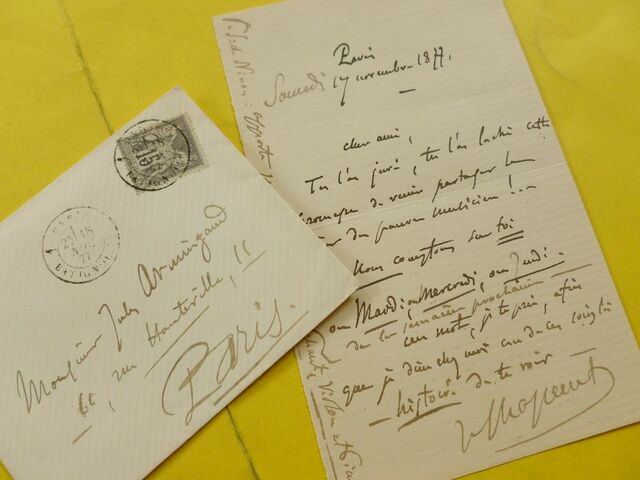 Paris
Samedi 17 novembre 1877.
cher ami,
Tu l'as juré, tu l'as lâché cette
promesse de venir partager le
du pauvre musicien!
Nous comptons sur toi
ou Mardi, ou Mercredi, ou Jeudi.
de la semaine prochaine
un mot, je te prie, afin
que je dîne chez moi un de ces
histoire de te voir
Monsieur Jules Armingaud
rue Hauteville,
Paris.
PARIS
18
77
BATIGNOLLES
15